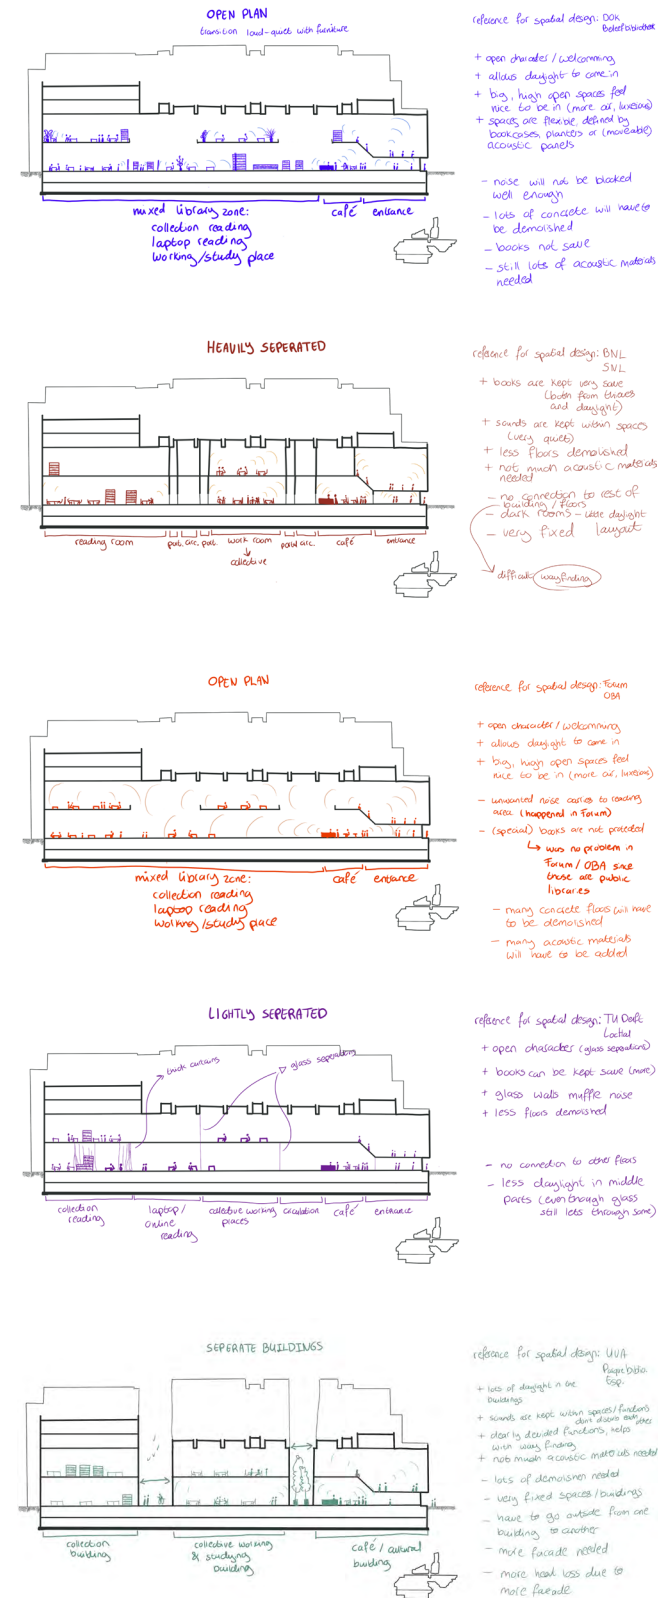 OPEN PLAN
transition loud-quiet with furniture
mixed library zone:
collection reading
laptop reading
working/study place
café
entrance
reference for spatial design: DOK
Beleef bibliotheek
+ open character / welcomming
+ allows daylight to come in
+ big, high open spaces feel
nice to be in (more air, luxerious)
+ spaces are flexible, defined by
bookcases, planters or (moveable)
acoustic panels
- noise will not be blocked
well enough
- lots of concrete will have to
be demolished
- books not save
- still lots of acoustic materials
needed
HEAVILY SEPERATED
reading room
pat. circ. pat.
work room
collective
patio circ.
café
entrance
reference for spatial design: BNL
SNL
+ books are kept very save
(both from thieves
and daylight)
+ sounds are kept within spaces
(very quiet)
+ less floors demolished
+ not much acoustic materials
needed
- no connection to rest of
building / floors
- dark rooms - little daylight
- very fixed layout
difficult wayfinding
OPEN PLAN
mixed library zone:
collection reading
laptop reading
working/study place
café
entrance
reference for spatial design: Forum
OBA
+ open character / welcomming
+ allows daylight to come in
+ big, high open spaces feel
nice to be in (more air, luxerious)
- unwanted noise carries to reading
area (happened in Forum)
- (special) books are not protected
was no problem in
Forum / OBA since
those are public
libraries
- many concrete floors will have
to be demolished
- many acoustic materials
will have to be added
LIGHTLY SEPERATED
thick curtains
glass seperations
collection
reading
laptop/
online
reading
collective working
places
circulation
café
entrance
reference for spatial design: TU Delft
Lochal
+ open character (glass seperations)
+ books can be kept save (more)
+ glass walls muffle noise
+ less floors demolished
- no connection to other floors
- less daylight in middle
parts (even though glass
still lets through some)
SEPERATE BUILDINGS
collection
building
collective working
& studying
building
café / cultural
building
reference for spatial design: UVA
Parque biblio.
Esp.
+ lots of daylight in the
buildings
+ sounds are kept within spaces/functions
dont disturb each other
+ clearly devided functions, helps
with way finding
+ not much acoustic materials needed
- lots of demolishen needed
- very fixed spaces/buildings
- have to go outside from one
building to another
- more facade needed
- more heat loss due to
more facade